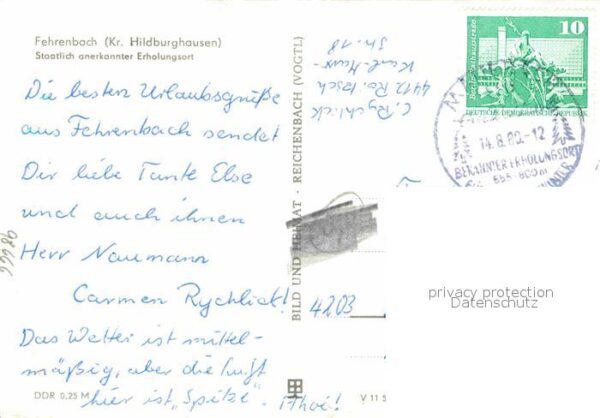 Fehrenbach (Kr. Hildburghausen)
Staatlich anerkannter Erholungsort
Die besten Urlaubsgrüße
aus Fehrenbach sendet
Dir liebe Tante Else
und auch ihnen
Herr Naumann
Carmen Rychlick!
Das Wetter ist mittel-
mäßig, aber die Luft
hier ist „Spitze". Ahoi!
DDR 0,25 M
99986
BILD UND HEIMAT · REICHENBACH (VOGTL)
C. Rychlick
Str. 18
4203
V 11 5
10
DEUTSCHE DEMOKRATISCHE REPUBLIK
14.8.80.-12
ERHOLUNGSORT
privacy protection
Datenschutz